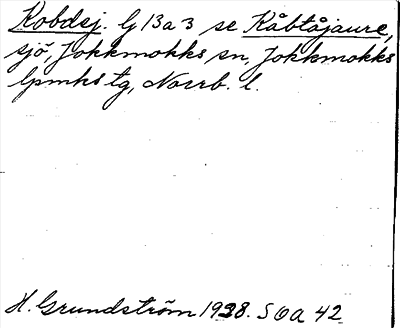 Kobdsj. G 13 a 3 se Kåbtåjaure,
sjö, Jokkmokks sn, Jokkmokks
lpmks tg, Norrb. l.
H. Grundström 1938. S O a 42